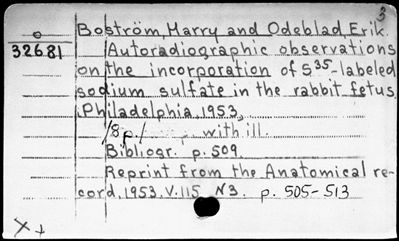 3
o Boström, Harry and Odeblad, Erik.
32681 Autoradiographic observations
on the incorporation of S35-labeled
sodium sulfate in the rabbit fetus,
Philadelphia, 1953,
/8 p./ p. with ill.
Bibliogr. p. 509.
Reprint from the Anatomical re-
cord, 1953. V. 115 N3. p. 505-513
X +